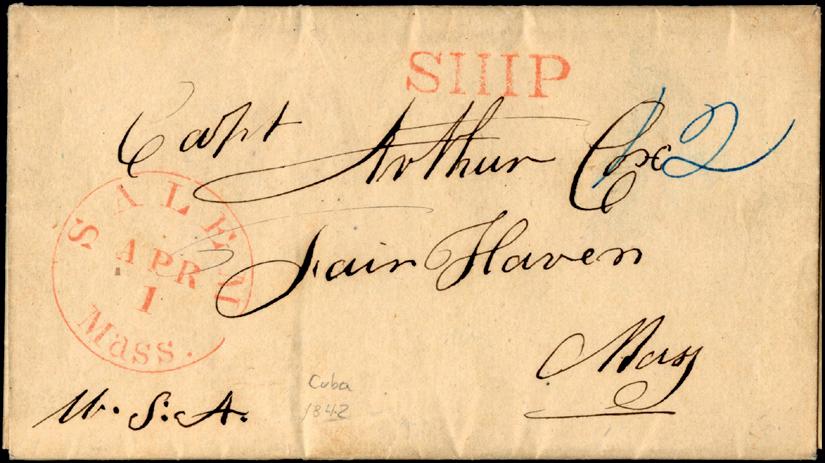 SHIP
Capt Arthur Cox
12
SALEM
APR
1
Mass.
Fair Haven
Mass
U. S. A.
Cuba
1842